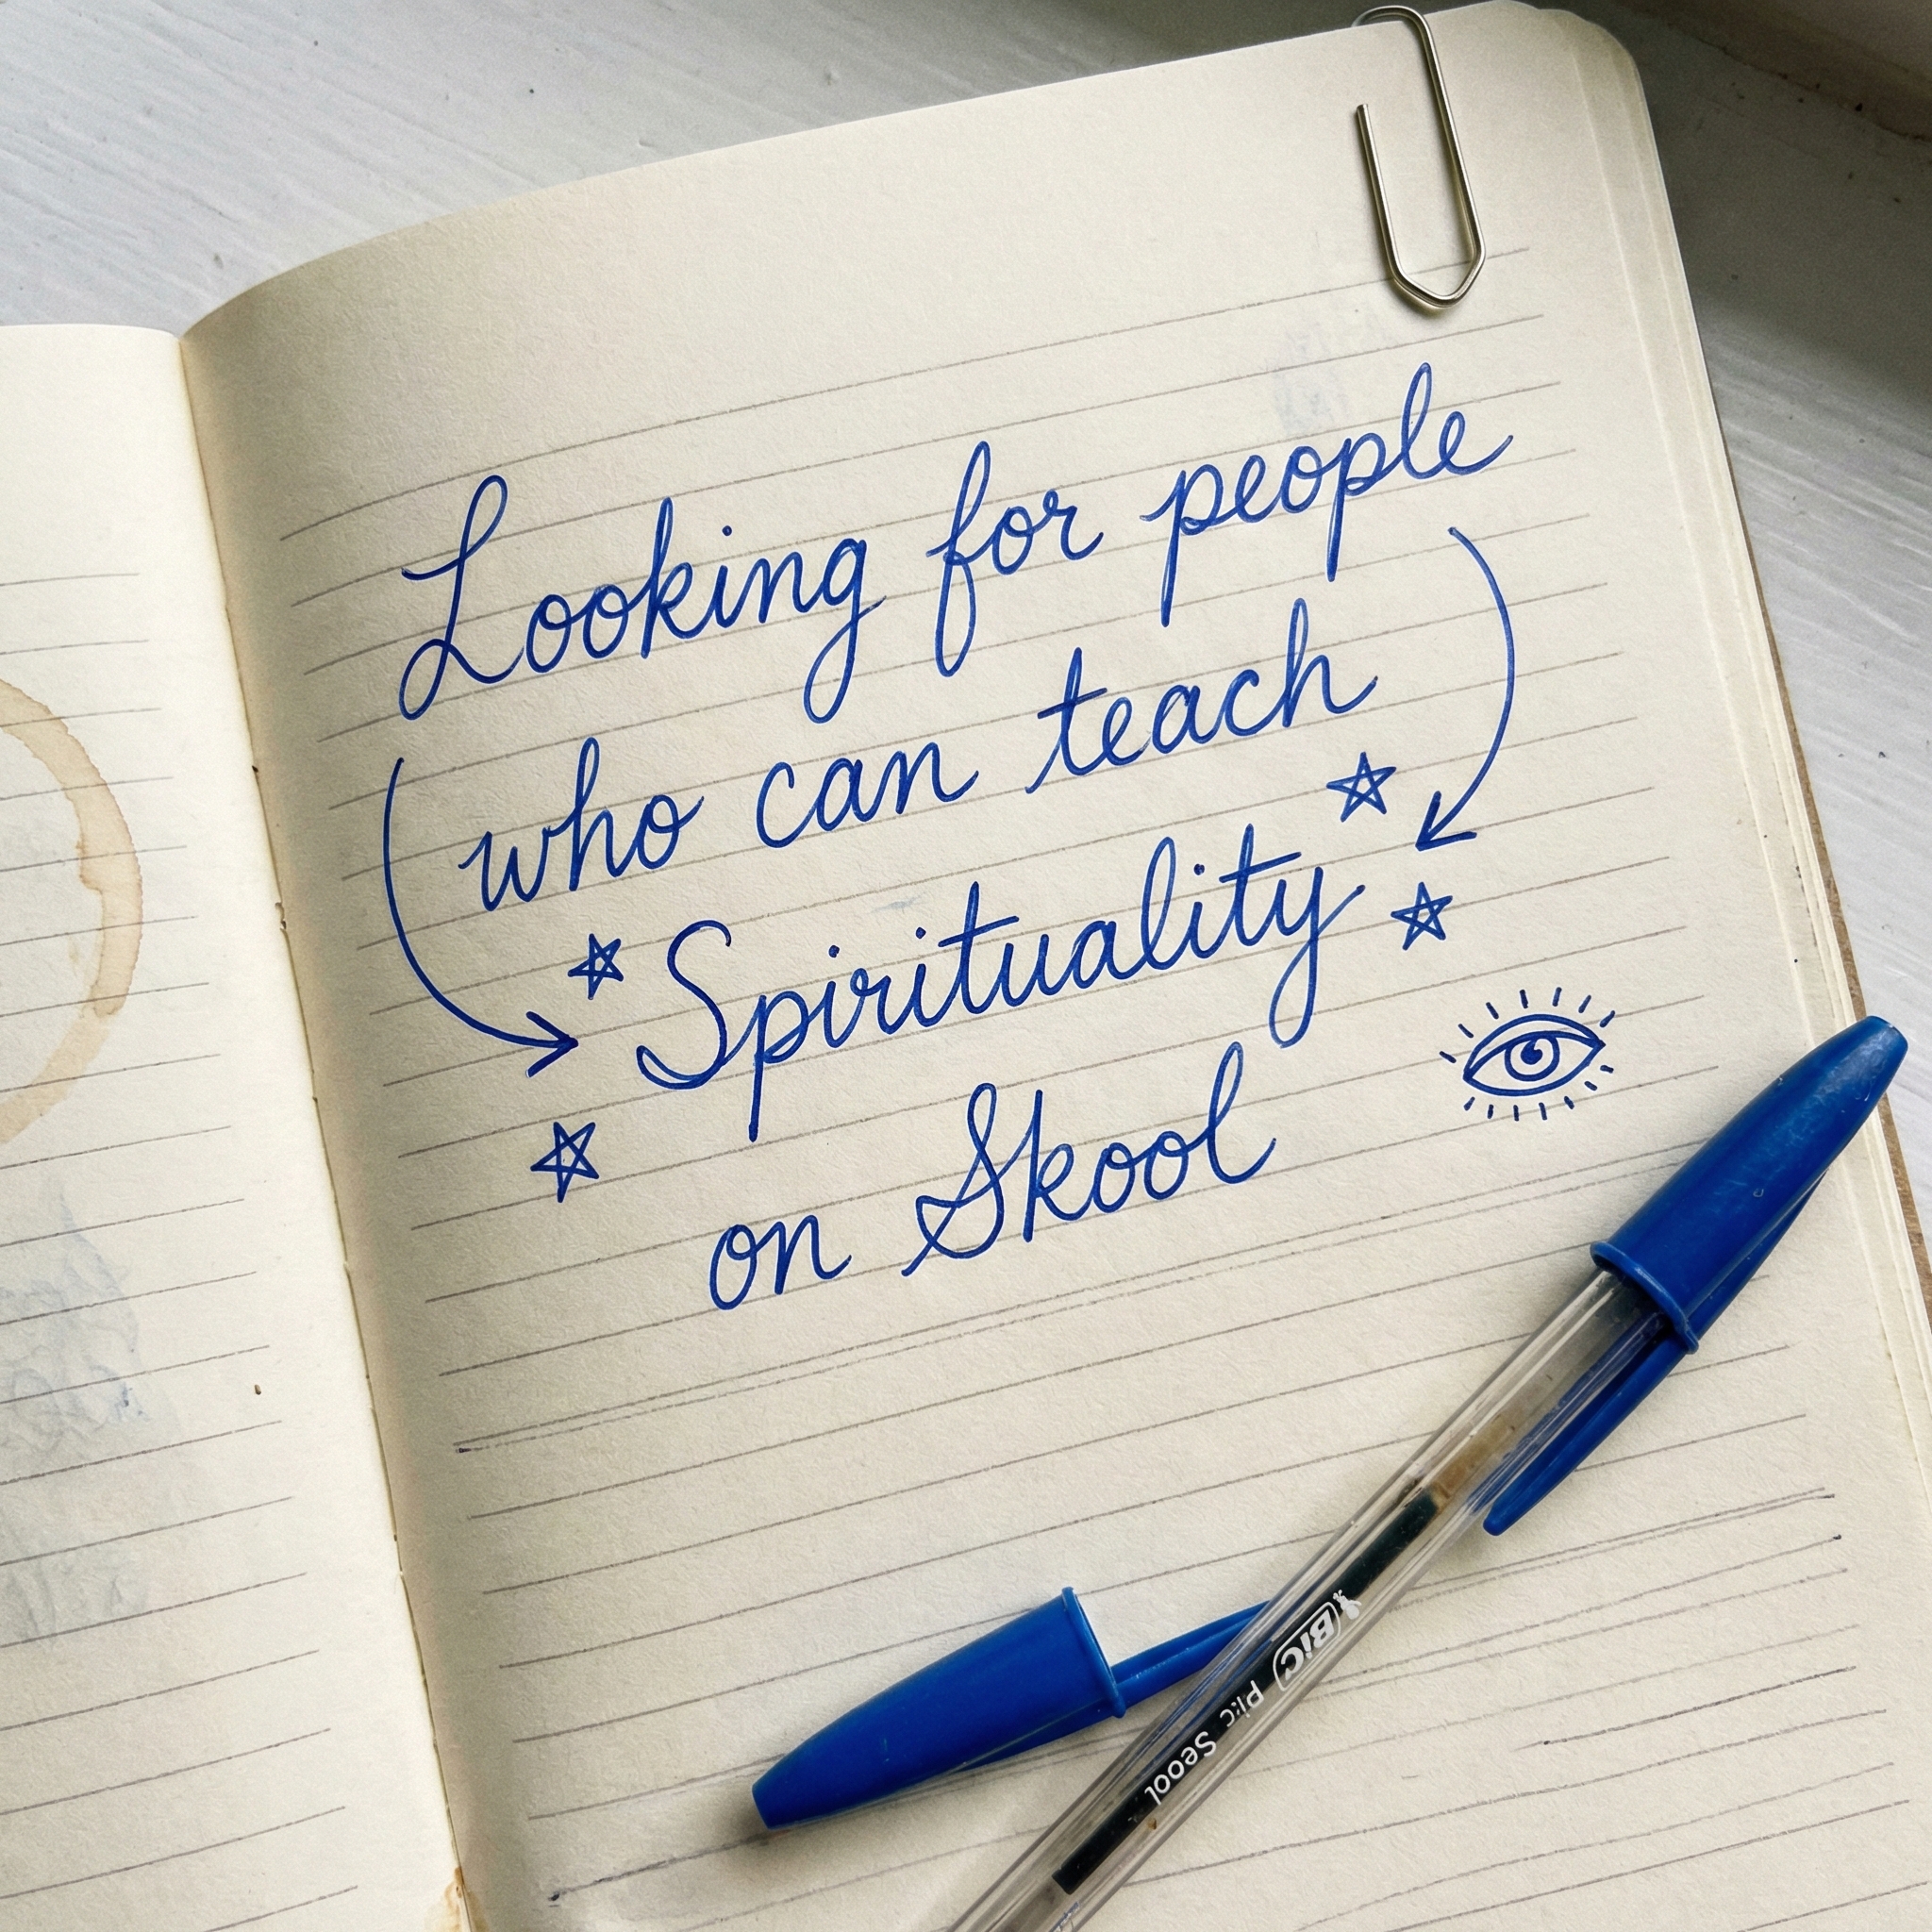 Looking for people
who can teach
Spirituality
on Skool
BIC Plic Seool